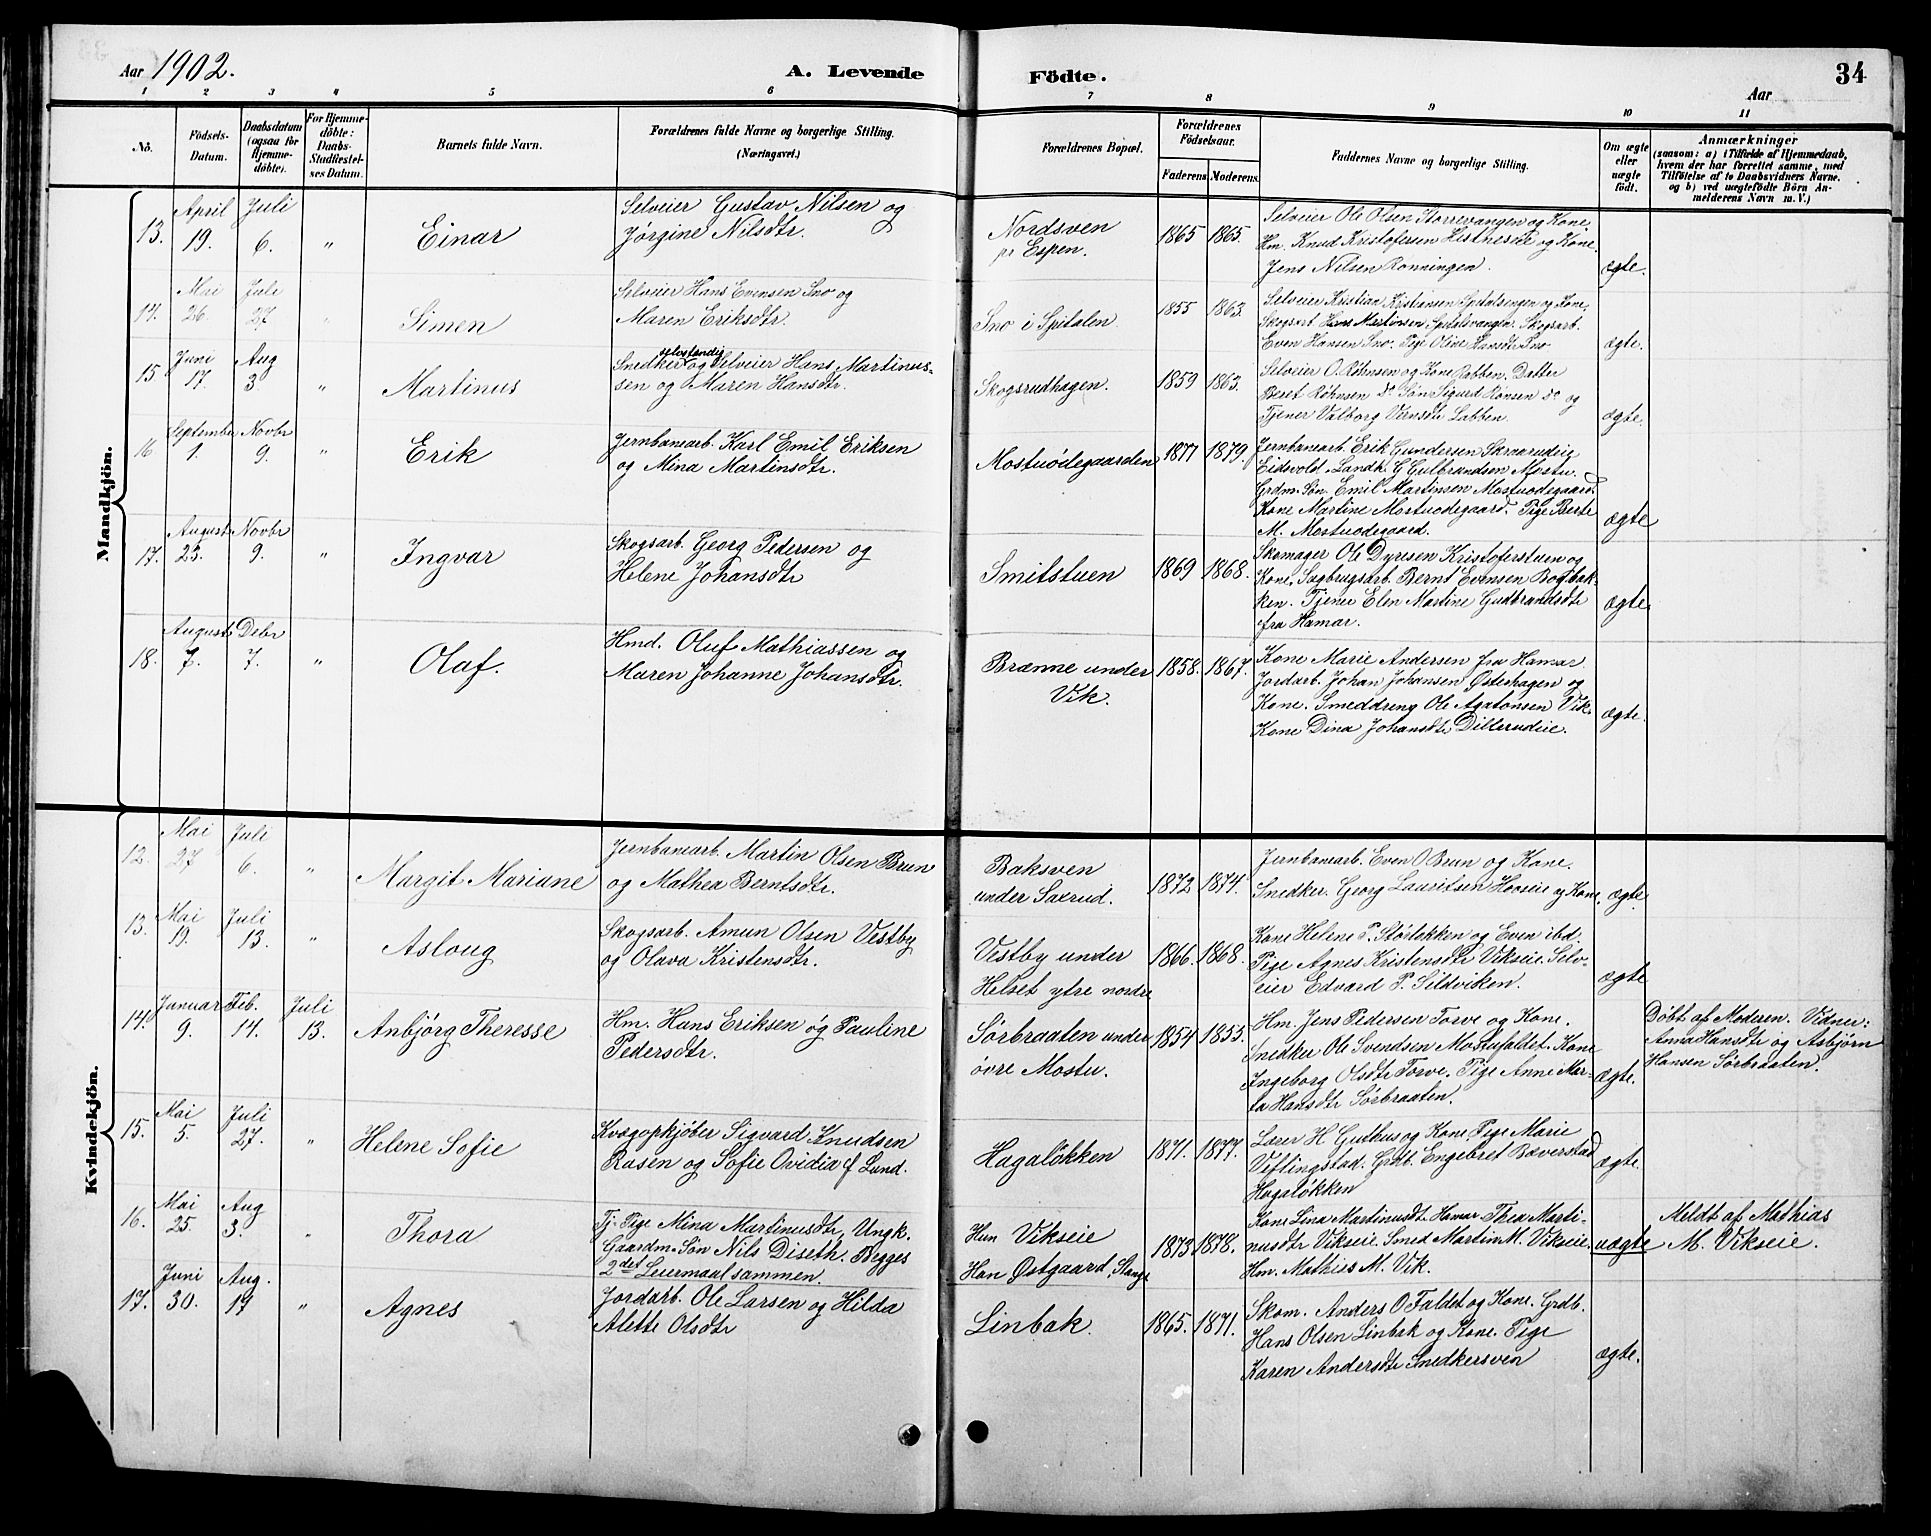 Aar 1902.
A. Levende
Födte.
Aar
34
1 2 3 4 5 6 7 8 9 10 11
No.
Födsels-
Datum.
Daabsdatum
(ogsaa for
Hjemme-
døbte).
For Hjemme-
døbte:
Daabs-
Stadfæstel-
ses Datum.
Barnets fulde Navn.
Forældrenes fulde Navne og borgerlige Stilling.
(Næringsvei.)
Forældrenes Bopæl.
Forældrenes
Fødselsaar.
Faderens. Moderens.
Faddernes Navne og borgerlige Stilling.
Om ægte
eller
uægte
født.
Anmærkninger
(saasom: a) i Tilfælde af Hjemmedaab,
hvem der har forrettet samme, med
Tilføielse af to Daabsvidners Navne,
og b) ved uægtefødte Børn An-
melderens Navn m. V.)
Mandkjön.
13. April 19. Juli 6. " Einar
Selveier Gustav Nilsen og
Jørgine Nilsdtr.
Nordsven
pr Espen.
1865 1865.
Selveier Ole Olsen Storrevangen og Kone.
Hm. Knud Kristofersen Histneseie og Kone.
Jens Nilsen Rønningen.
ægte.
14. Mai 26. Juli 27 " Simen
Selveier Hans Evensen Sno og
Maren Eriksdtr.
Sno i Spitalen
1855 1863.
Selveier Kristian Kristiansen Spitalsengen og Kone,
Skogsarb. Hans Martinsen Spitalsvangen. Skogsarb.
Even Hansen Sno. Pige Oline Hansdtr Sno
ægte.
15. Juni 17. Aug 3. " Martinus
selvstændig
Snedker og Selveier Hans Martinus-
sen og Maren Hansdtr.
Skogsrudhagen.
1859 1863.
Selveier O. Røbnsen og Kone Rabben. Datter
Beret Røbnsen do Søn Sigurd Rønsen do og
Tjener Valborg Labben.
ægte.
16. September 1. Novbr 9. " Erik
Jernbanearb. Karl Emil Eriksen
og Mina Martinsdtr.
Mostuødegaarden
1877 1879.
Jernbanearb. Erik Gundersen Skraarudeig
Eidsvold. Landh. G Gulbrandsen Mostu.
Grdm. Søn Emil Martinsen Mostuødegaard.
Kone Martine Mostuødegaard. Pige Berte
M. Mostuødegaard.
ægte
17. August 23. Novbr 9. " Ingvar
Skogsarb. Georg Pedersen og
Helene Johansdtr
Smitstuen
1869 1868.
Skomager Ole Dyresen Kristoferstuen og
Kone, Sagbrugsarb. Bernt Evensen Bogbak-
ken. Tjener Elen Martine Gudbrandsdtr
fra Hamar.
ægte
18. August 7. Debr 7. " Olaf.
Hmd. Oluf Mathiassen og
Maren Johanne Johansdtr.
Brænne under
Vik.
1858. 1867.
Kone Marie Andersen fra Hamar
Jordarb. Johan Johansen Østerhagen og
Kone. Smeddreng Ole Agatonsen Vik.
Kone Dina Johansdtr Dillerudeie.
ægte.
Kvindekjön.
12. Mai 27 Juli 6. " Margit Mariane
Jernbanearb. Martin Olsen Brun
og Mathea Berntsdtr.
Baksven
under Saxrud.
1872 1874.
Jernbanearb. Even O Brun og Kone.
Snedker. Georg Lauritsen Hoveie og Kone.
ægte
13. Mai 19. Juli 13. " Asloug
Skogsarb. Amun Olsen Vestby
og Olava Kristensdtr.
Vestby under
Helset ytre nordre
1866. 1868.
Kone Helene P. Størlökken og Even ibd.
Pige Agnes Kristensdtr Vikseie. Selv-
eier Edvard P. Sildviken.
ægte
14. Januar 9. Feb. 14. Juli 13. Anbjörg Theresse
Hm. Hans Eriksen og Pauline
Pedersdtr.
Sørbraaten under
øvre Mostu.
1854 1855.
Hm. Jens Pedersen Torve og Kone.
Snedker Ole Svendsen Mostufaldet. Kone
Ingeborg Olsdtr Torve. Pige Anne Mar-
ta Hansdtr Sørbraaten.
ægte.
Døbt af Moderen. Vidner:
Anna Hansdtr og Asbjørn
Hansen Sørbraaten.
15. Mai 5. Juli 27. " Helene Sofie
Kvægopkjøber Sigvard Knudsen
Rasen og Sofie Ovidia f Lund.
Hagaløkken
1871. 1877.
Lærer H. Guthus og Kone, Pige Marie
Veflingstad. Grdb. Engebret Bæverstad
Hagaløkken
ægte.
16. Mai 25. Aug 3. " Thora
Tj. Pige Mina Martinusdtr, Ungk.
Gaardm. Søn Nils Diseth. Begges
2det Leiermaal sammen.
Hun Vikseie
Han Østgaard, Stange
1873 1878.
Kone Lina Martinusdtr Hamar Thea Marti-
nusdtr Vikseie Smed Martin M. Vikseie.
Hm. Mathias M. Vik.
uægte
Meldt af Mathias
M. Vikseie.
17. Juni 30. Aug. 17 " Agnes
Jordarb. Ole Larsen og Hilda
Alette Olsdtr
Linbak.
1865. 1871.
Skom. Anders O Faldet og Kone. Grdb.
Hans Olsen Linbak og Kone. Pige
Karen Andersdtr Snedkersven
ægte.